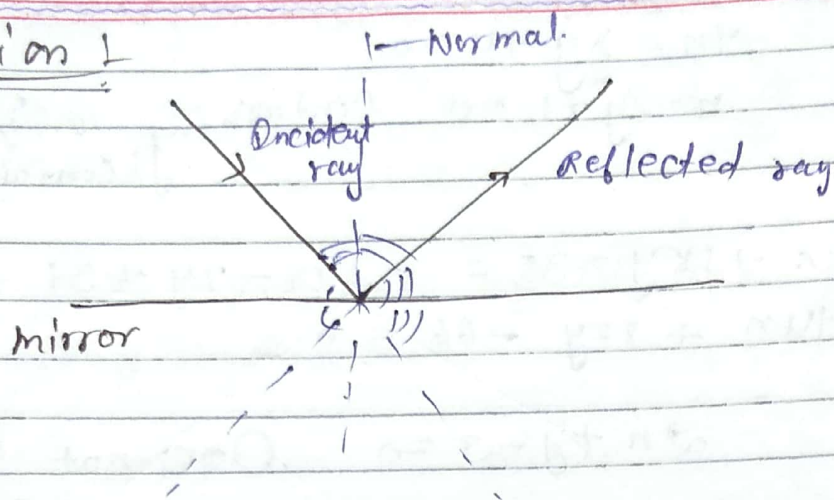 ion 1
Normal.
Incident
ray
Reflected ray
mirror